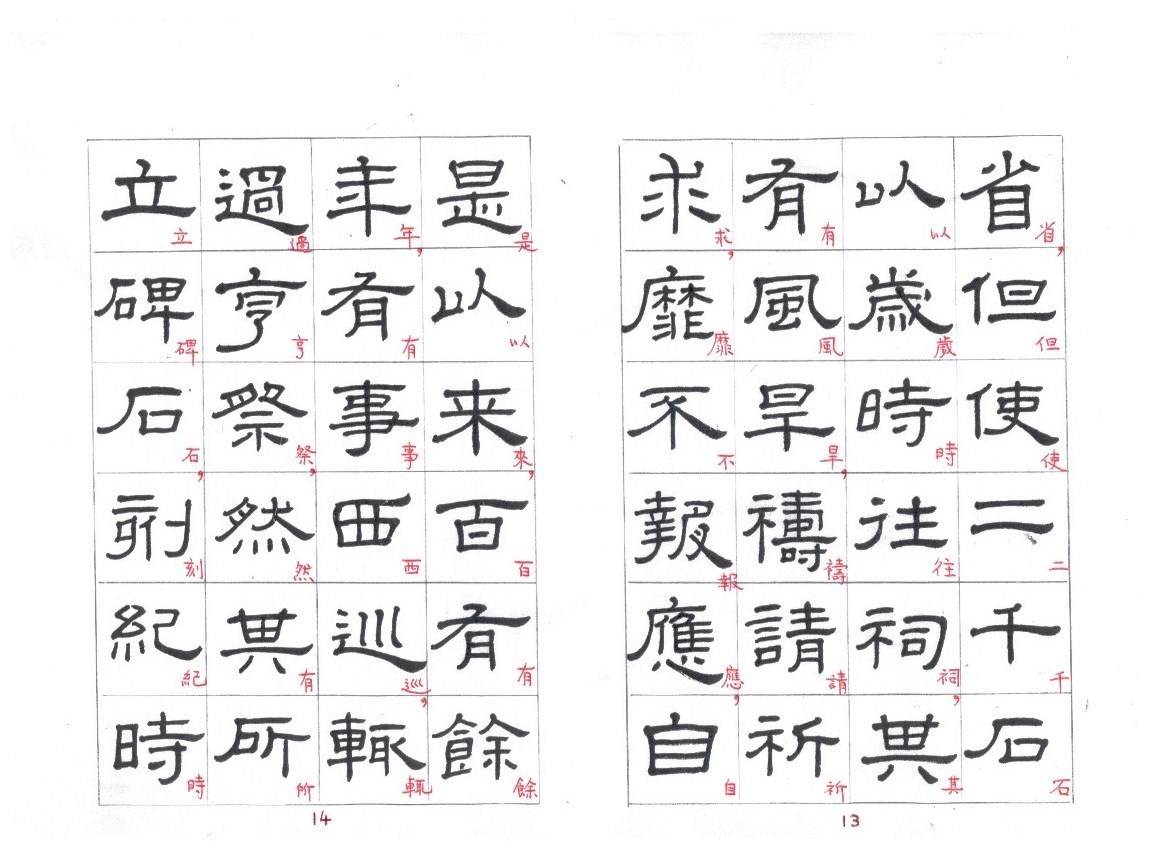 省但使二千石
省,但使二千石
以歲時往祠其
以歲時往祠,其
有風旱禱請祈
有風旱,禱請祈
求靡不報應自
求,靡不報應,自
13
是以来百有餘
是以來,百有餘
年有事西巡輒
年,有事西巡,輒
過亨祭然其所
過亨祭,然有所
立碑石刻紀時
立碑石,刻紀時
14